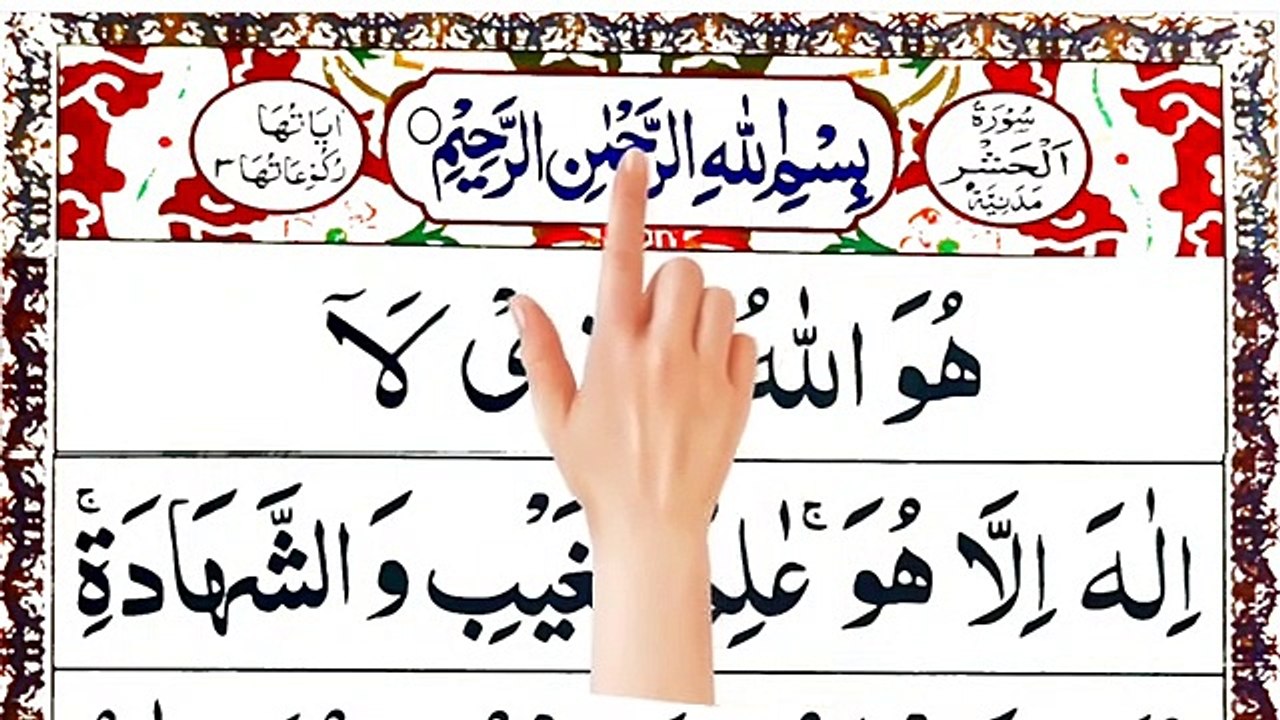 سُوْرَةُ
اَلْحَشْرِ
مَدَنِيَّةٌ
بِسْمِ اللّٰهِ الرَّحْمٰنِ الرَّحِيْمِ
اٰيَاتُهَا
رُكُوْعَاتُهَا ٣
هُوَ اللّٰهُ لَاۤ
اِلٰهَ اِلَّا هُوَ ۚ عٰلِمُ وَ الشَّهَادَةِ ۚ